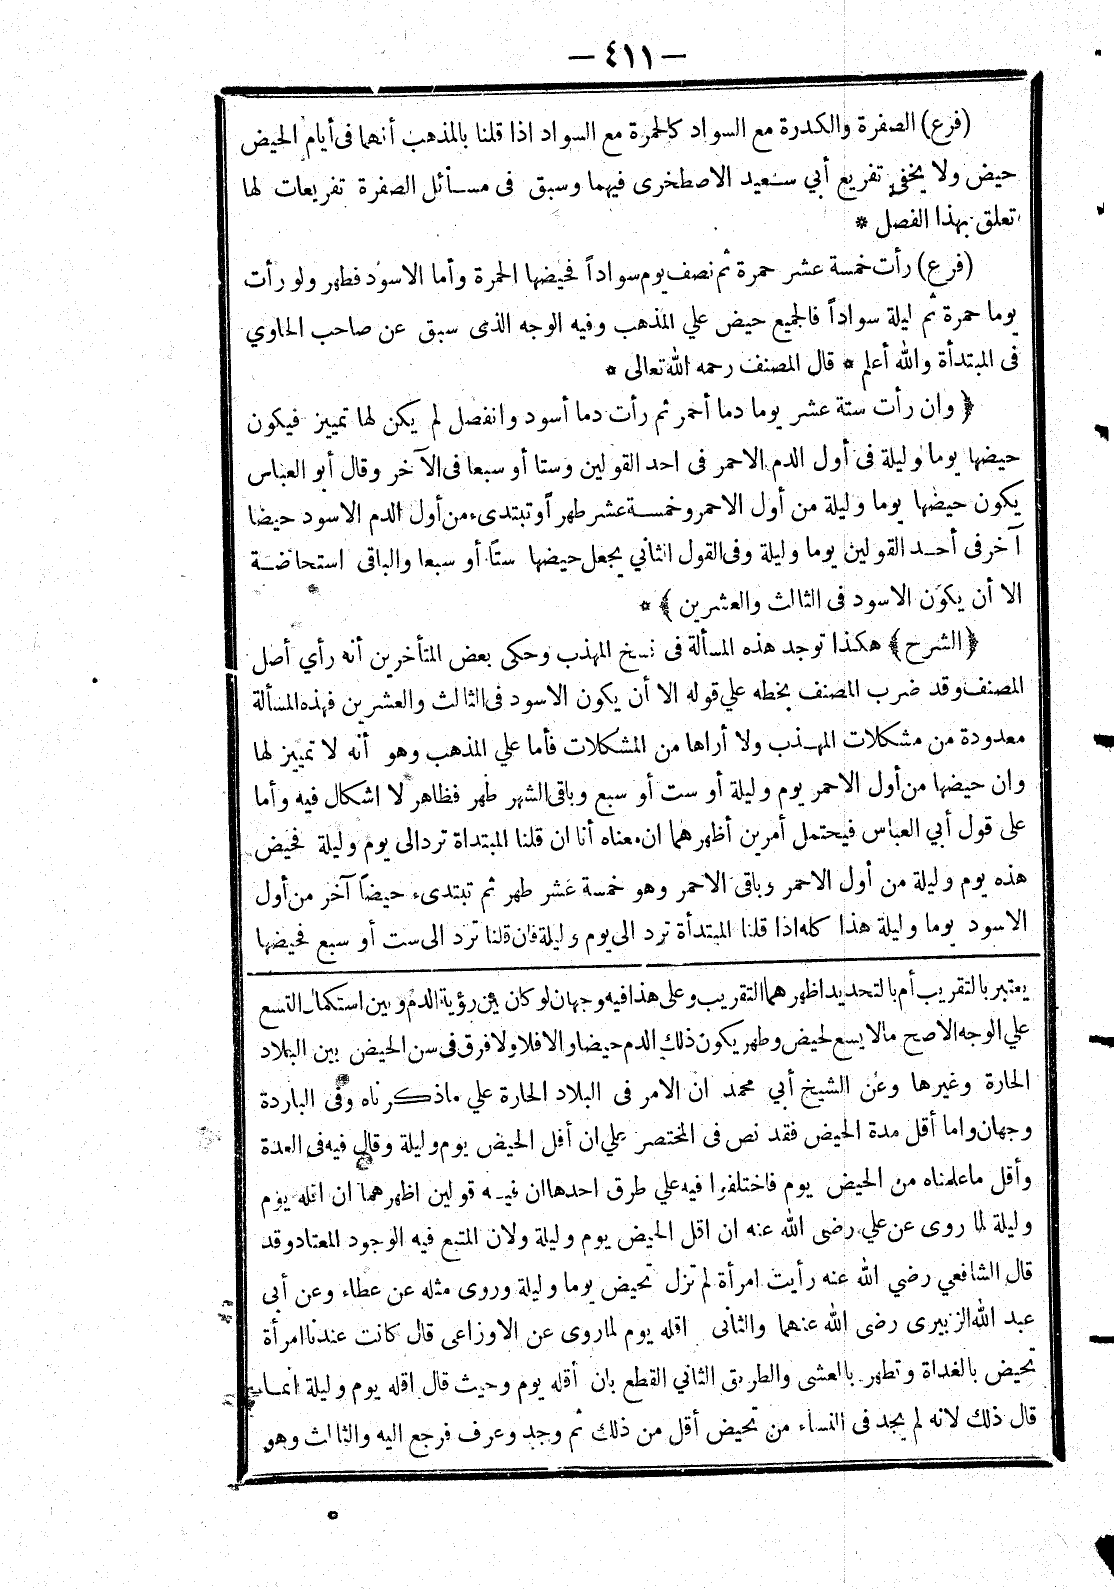 — ٤١١ —
(فرع) الصفرة والكدرة مع السواد كالحمرة مع السواد اذا قلنا بالمذهب أنهما فى أيام الحيض
حيض ولا يخفى تفريع أبي سعيد الاصطخرى فيهما وسبق فى مسائل الصفرة تفريعات لها
تعلق بهذا الفصل *
(فرع) رأت خمسة عشر حمرة ثم نصف يوم سواداً فحيضها الحمرة وأما الاسود فطهر ولو رأت
يوما حمرة ثم ليلة سواداً فالجميع حيض علي المذهب وفيه الوجه الذى سبق عن صاحب الحاوي
فى المبتدأة والله أعلم * قال المصنف رحمه الله تعالى *
﴿ وان رأت ستة عشر يوما دما أحمر ثم رأت دما أسود وانفصل لم يكن لها تمييز فيكون
حيضها يوما وليلة فى أول الدم الاحمر فى احد القولين وستا أو سبعا فى الآخر وقال أبو العباس
يكون حيضها يوما وليلة من أول الاحمر وخمسة عشر طهراً وتبتدىء من أول الدم الاسود حيضا
آخر فى أحد القولين يوما وليلة وفى القول الثاني يجعل حيضها ستا أو سبعا والباقى استحاضة
الا أن يكون الاسود فى الثالث والعشرين ﴾ *
﴿ الشرح ﴾ هكذا توجد هذه المسألة فى نسخ المهذب وحكى بعض المتأخرين أنه رأي أصل
المصنف وقد ضرب المصنف بخطه علي قوله الا أن يكون الاسود فى الثالث والعشرين فهذه المسألة
معدودة من مشكلات المهذب ولا أراها من المشكلات فأما علي المذهب وهو أنه لا تمييز لها
وان حيضها من أول الاحمر يوم وليلة أو ست أو سبع وباقى الشهر طهر فظاهر لا اشكال فيه وأما
على قول أبي العباس فيحتمل أمرين أظهرهما ان معناه أنا ان قلنا المبتداة ترد الى يوم وليلة فحيض
هذه يوم وليلة من أول الاحمر وباقى الاحمر وهو خمسة عشر طهر ثم تبتدىء حيضاً آخر من أول
الاسود يوما وليلة هذا كله اذا قلنا المبتدأة ترد الى يوم وليلة فان قلنا ترد الى ست أو سبع فحيضها
يعتبر بالتقريب أم بالتحديد اظهرهما التقريب وعلى هذا فيه وجهان لو كان بين رؤية الدم وبين استكمال التسع
علي الوجه الاصح مالا يسع لحيض وطهر يكون ذلك الدم حيضا والا فلا ولا فرق فى سن الحيض بين البلاد
الحارة وغيرها وعن الشيخ أبي محمد ان الامر فى البلاد الحارة علي ماذكرناه وفى الباردة
وجهان واما أقل مدة الحيض فقد نص فى المختصر علي ان أقل الحيض يوم وليلة وقال فيه فى العدة
وأقل ماعلمناه من الحيض يوم فاختلفوا فيه علي طرق احدها ان فيه قولين اظهرهما ان اقله يوم
وليلة لما روى عن علي رضى الله عنه ان اقل الحيض يوم وليلة ولان المتبع فيه الوجود المعتاد وقد
قال الشافعي رضي الله عنه رأيت امرأة لم تزل تحيض يوما وليلة وروى مثله عن عطاء وعن أبى
عبد الله الزبيرى رضى الله عنهما والثانى اقله يوم لما روى عن الاوزاعى قال كانت عندنا امرأة
تحيض بالغداة وتطهر بالعشى والطريق الثاني القطع بان أقله يوم وحيث قال اقله يوم وليلة انما
قال ذلك لانه لم يجد فى النساء من تحيض أقل من ذلك ثم وجد وعرف فرجع اليه والثالث وهو